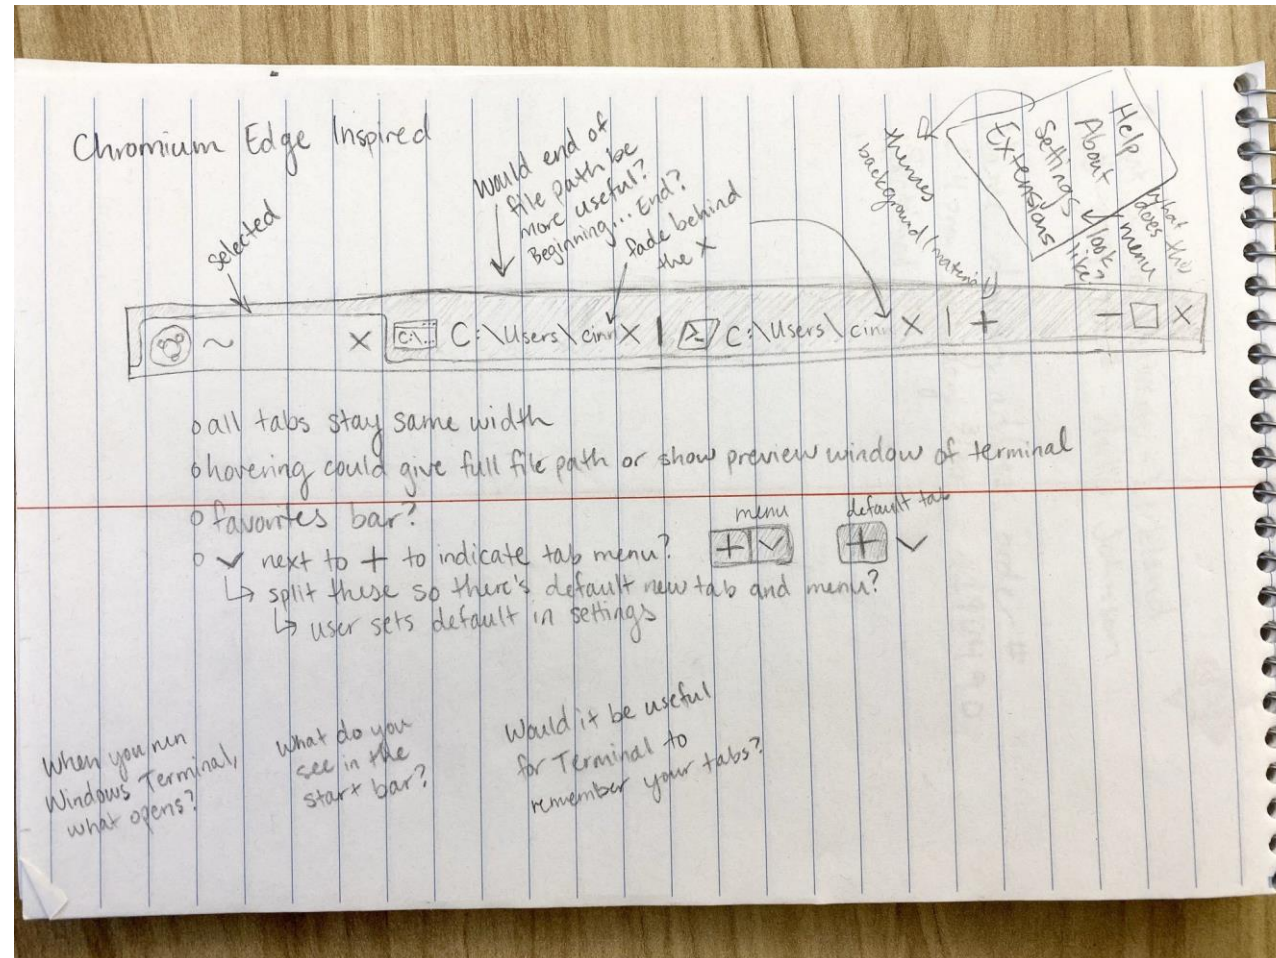 Chromium Edge Inspired
selected
Would end of
file path be
more useful?
Beginning... End?
fade behind
the X
themes
background (material)
Help
About
Settings
Extensions
what
does the
menu
look
like?
~ X C:\.. C:\Users\cinn X | >_ C:\Users\cinn X | + – □ X
all tabs stay same width
hovering could give full file path or show preview window of terminal
favorites bar?
✓ next to + to indicate tab menu?
menu
default tab
↳ split these so there's default new tab and menu?
↳ user sets default in settings
When you run
Windows Terminal,
what opens?
What do you
see in the
start bar?
Would it be useful
for Terminal to
remember your tabs?